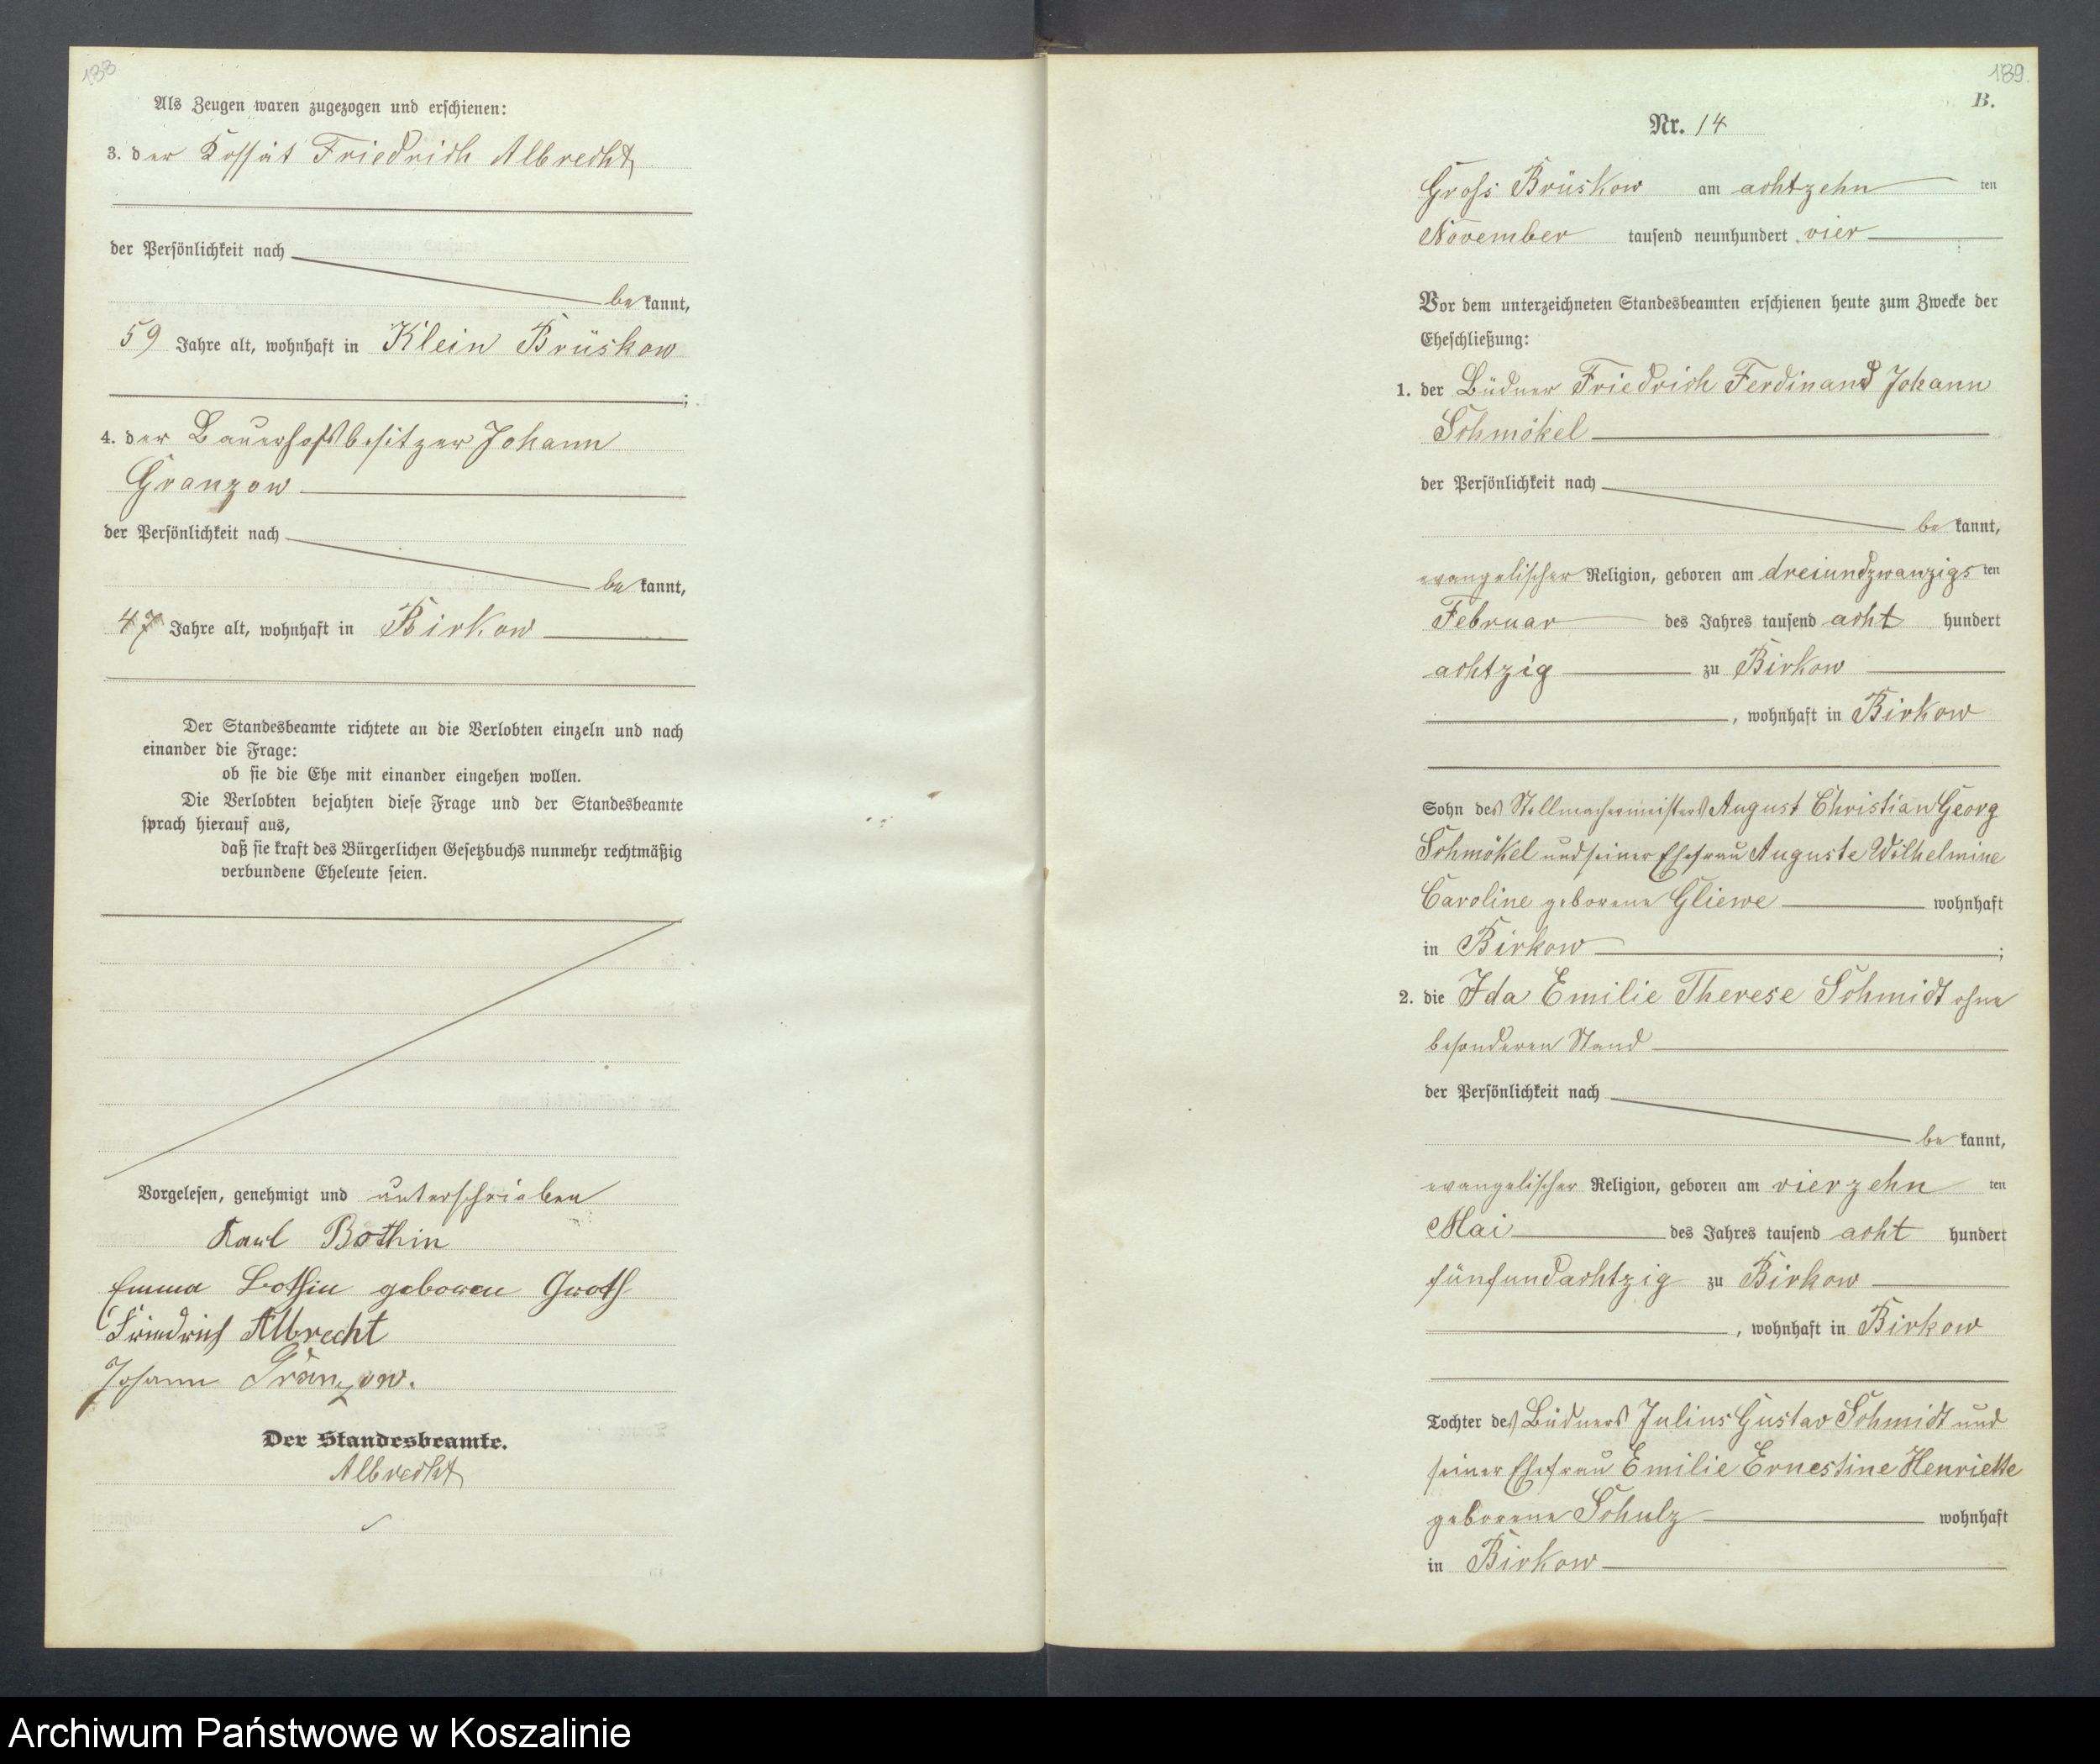 188
Als Zeugen waren zugezogen und erschienen:
3. der Kossät Friedrich Albrecht
der Persönlichkeit nach
be kannt,
59 Jahre alt, wohnhaft in Klein Brüskow
;
4. der Bauerhofsbesitzer Johann
Granzow
der Persönlichkeit nach
be kannt,
47 Jahre alt, wohnhaft in Birkow
Der Standesbeamte richtete an die Verlobten einzeln und nach
einander die Frage:
ob sie die Ehe mit einander eingehen wollen.
Die Verlobten bejahten diese Frage und der Standesbeamte
sprach hierauf aus,
daß sie kraft des Bürgerlichen Gesetzbuchs nunmehr rechtmäßig
verbundene Eheleute seien.
Vorgelesen, genehmigt und unterschrieben
Karl Bothin
Emma Bothin geboren Groth
Friedrich Albrecht
Johann Granzow.
Der Standesbeamte.
Albrecht
189
B.
Nr. 14
Gross Brüskow am achtzehn ten
November tausend neunhundert vier
Vor dem unterzeichneten Standesbeamten erschienen heute zum Zwecke der
Eheschließung:
1. der Büdner Friedrich Ferdinand Johann
Schmökel
der Persönlichkeit nach
be kannt,
evangelischer Religion, geboren am dreiundzwanzigs ten
Februar des Jahres tausend acht hundert
achtzig zu Birkow
, wohnhaft in Birkow
Sohn des Stellmachermeisters August Christian Georg
Schmökel und seiner Ehefrau Auguste Wilhelmine
Caroline geborene Gliewe wohnhaft
in Birkow ;
2. die Ida Emilie Therese Schmidt ohne
besonderen Stand
der Persönlichkeit nach
be kannt,
evangelischer Religion, geboren am vierzehn ten
Mai des Jahres tausend acht hundert
fünfundachtzig zu Birkow
, wohnhaft in Birkow
Tochter des Büdners Julius Gustav Schmidt und
seiner Ehefrau Emilie Ernestine Henriette
geborene Schulz wohnhaft
in Birkow
Archiwum Państwowe w Koszalinie